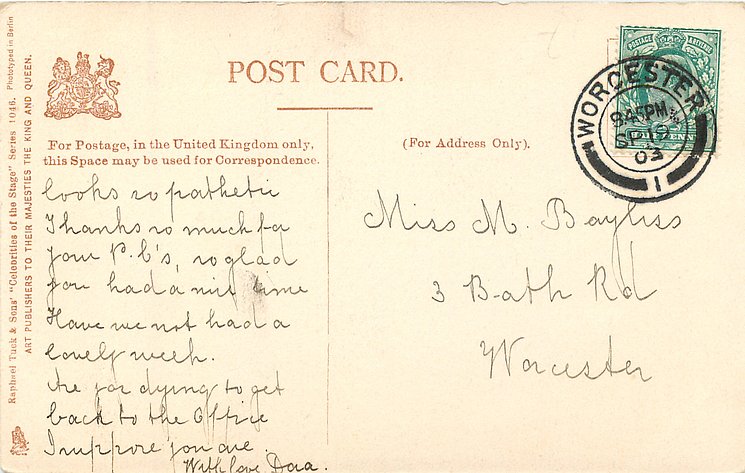 Raphael Tuck & Sons' "Celebrities of the Stage" Series 1046. Phototyped in Berlin
ART PUBLISHERS TO THEIR MAJESTIES THE KING AND QUEEN.
POST CARD.
For Postage, in the United Kingdom only,
this Space may be used for Correspondence.
(For Address Only).
POSTAGE & REVENUE
WORCESTER
8 45 PM
SP 19
03
1
looks so pathetic
Thanks so much for
your P.C's, so glad
you had a nice time
Have we not had a
lovely week.
Are you dying to get
back to the Office
I suppose you are.
With love
Miss M. Bayliss
3 Bath Rd
Worcester